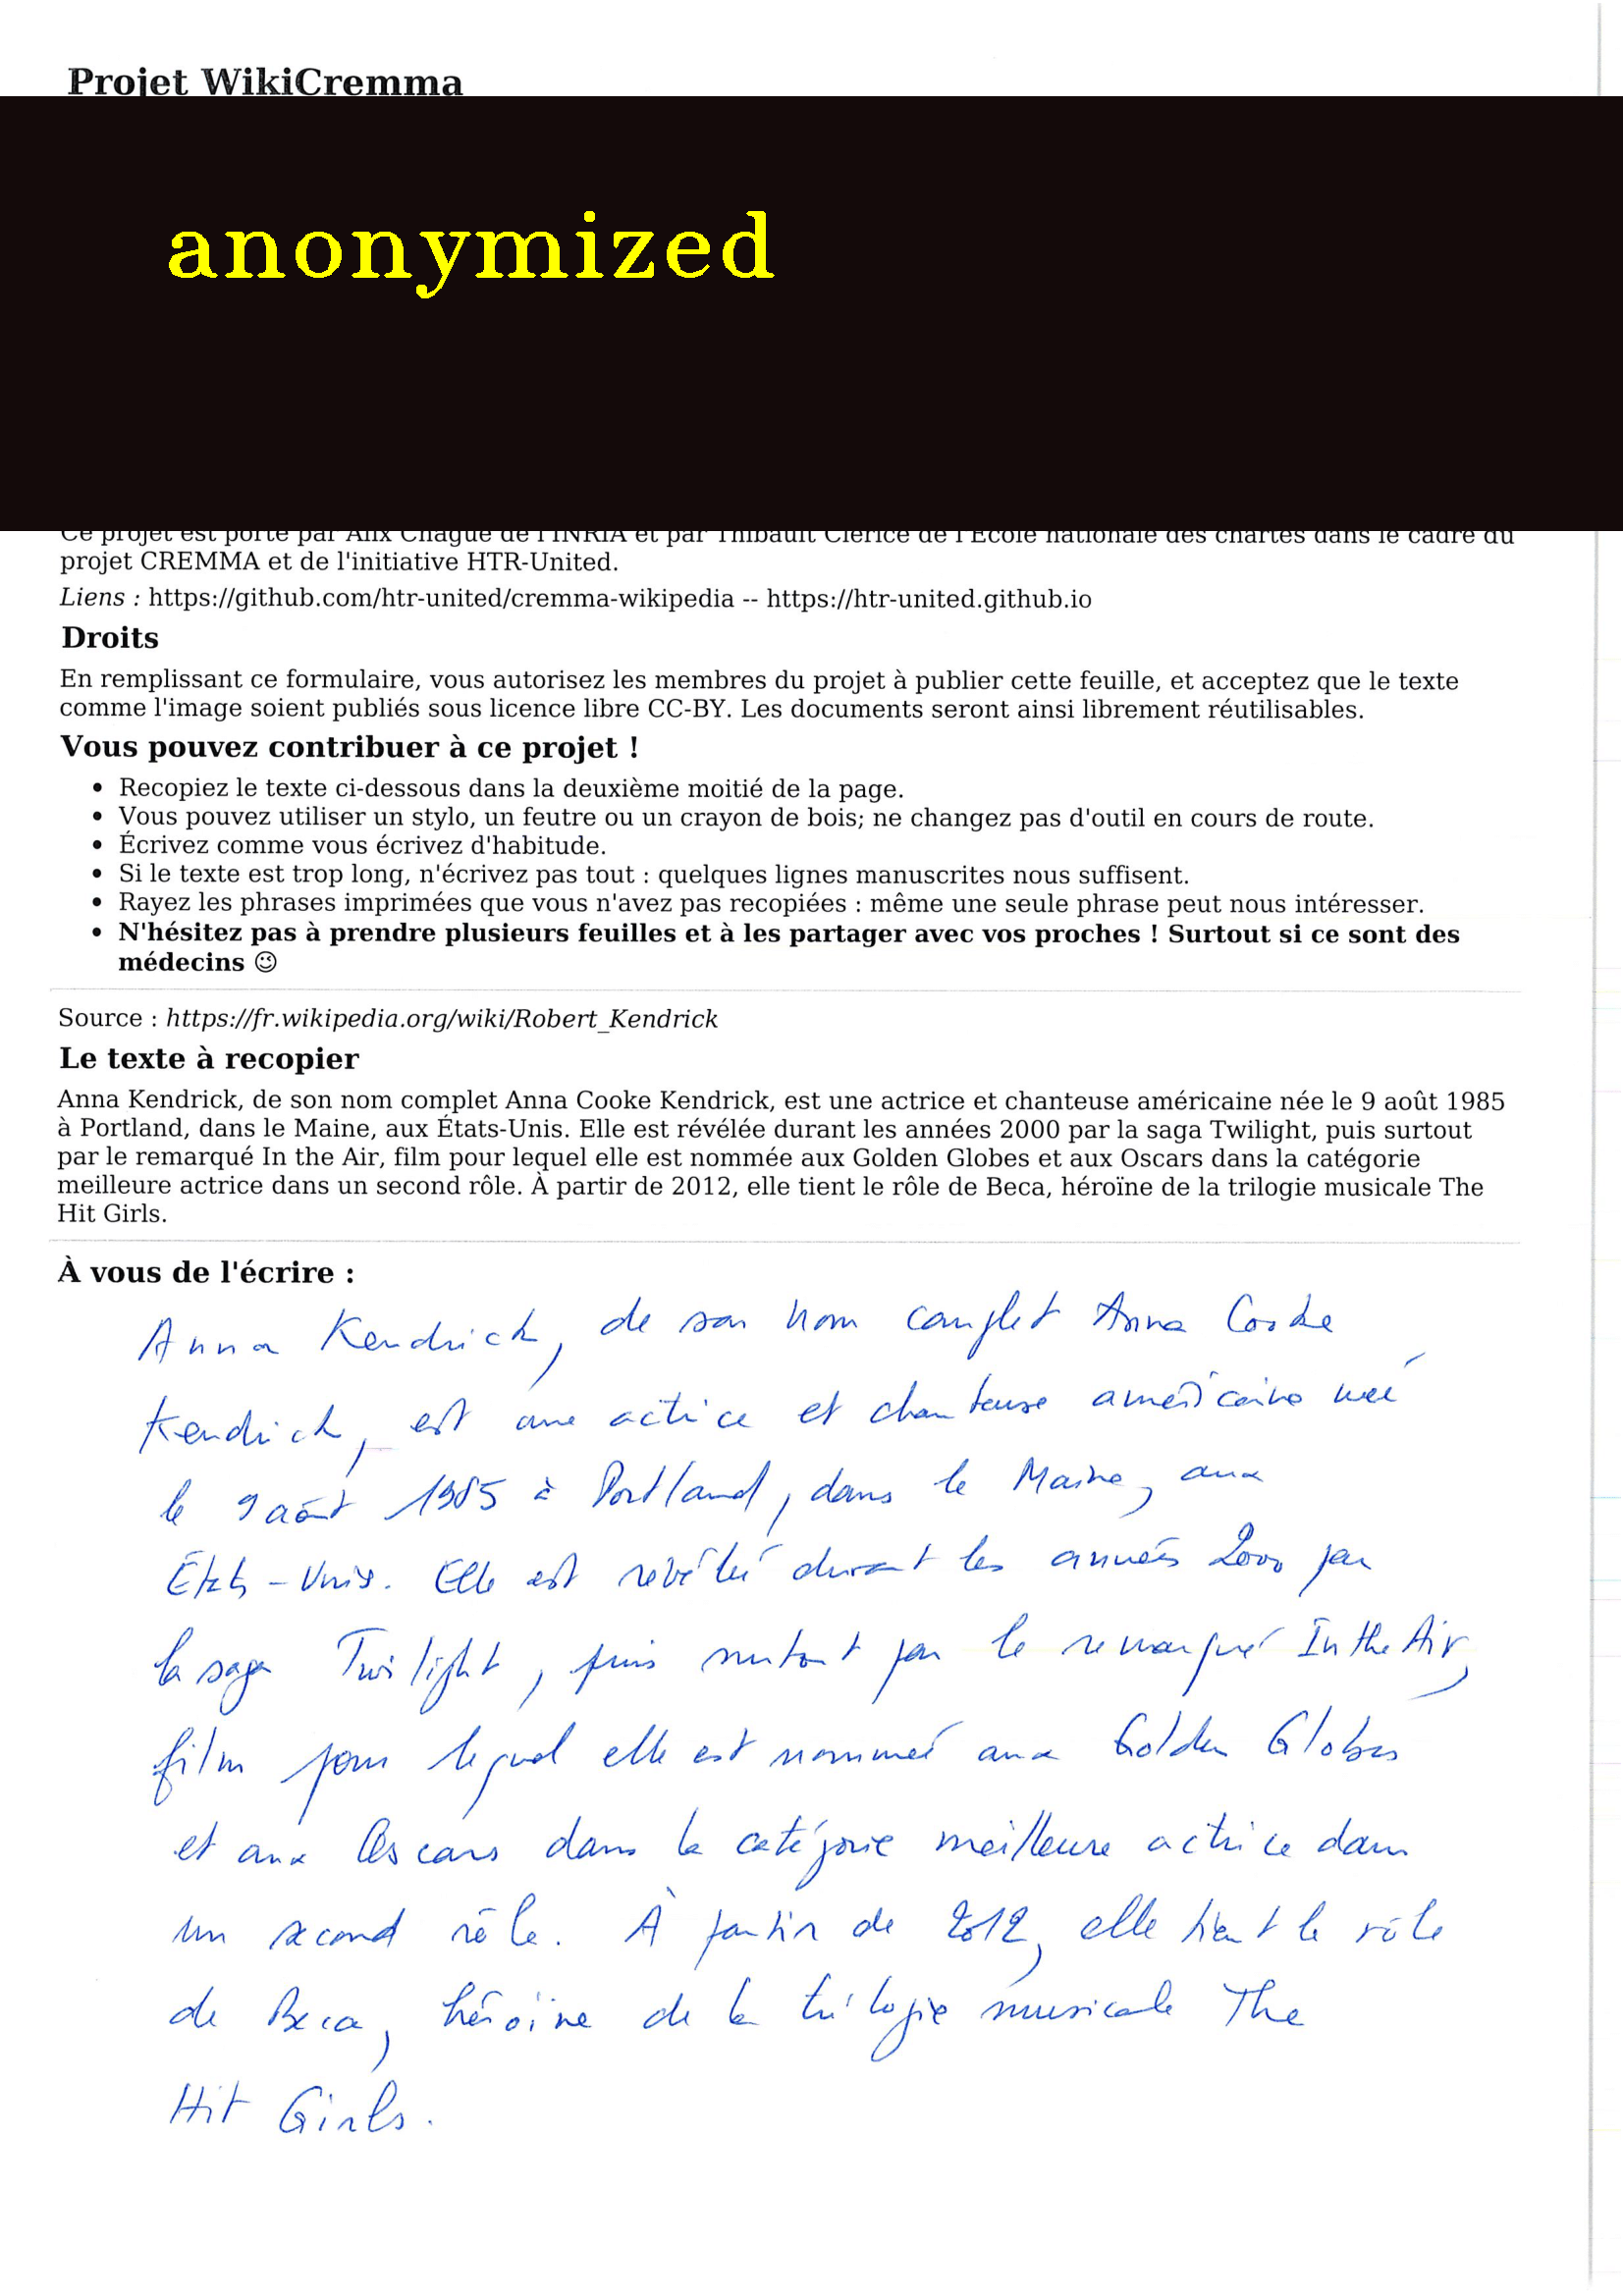 Projet WikiCremma
anonymized
Ce projet est porté par Alix Chagué de l'INRIA et par Thibault Clérice de l'École nationale des chartes dans le cadre du
projet CREMMA et de l'initiative HTR-United.
Liens : https://github.com/htr-united/cremma-wikipedia -- https://htr-united.github.io
Droits
En remplissant ce formulaire, vous autorisez les membres du projet à publier cette feuille, et acceptez que le texte
comme l'image soient publiés sous licence libre CC-BY. Les documents seront ainsi librement réutilisables.
Vous pouvez contribuer à ce projet !
• Recopiez le texte ci-dessous dans la deuxième moitié de la page.
• Vous pouvez utiliser un stylo, un feutre ou un crayon de bois; ne changez pas d'outil en cours de route.
• Écrivez comme vous écrivez d'habitude.
• Si le texte est trop long, n'écrivez pas tout : quelques lignes manuscrites nous suffisent.
• Rayez les phrases imprimées que vous n'avez pas recopiées : même une seule phrase peut nous intéresser.
• N'hésitez pas à prendre plusieurs feuilles et à les partager avec vos proches ! Surtout si ce sont des
médecins 😉
Source : https://fr.wikipedia.org/wiki/Robert_Kendrick
Le texte à recopier
Anna Kendrick, de son nom complet Anna Cooke Kendrick, est une actrice et chanteuse américaine née le 9 août 1985
à Portland, dans le Maine, aux États-Unis. Elle est révélée durant les années 2000 par la saga Twilight, puis surtout
par le remarqué In the Air, film pour lequel elle est nommée aux Golden Globes et aux Oscars dans la catégorie
meilleure actrice dans un second rôle. À partir de 2012, elle tient le rôle de Beca, héroïne de la trilogie musicale The
Hit Girls.
À vous de l'écrire :
Anna Kendrick, de son nom complet Anna Cooke
Kendrick, est une actrice et chanteuse américaine née
le 9 août 1985 à Portland, dans le Maine, aux
États-Unis. Elle est révélée durant les années 2000 par
la saga Twilight, puis surtout par le remarqué In the Air,
film pour lequel elle est nommée aux Golden Globes
et aux Oscars dans la catégorie meilleure actrice dans
un second rôle. À partir de 2012, elle tient le rôle
de Beca, héroïne de la trilogie musicale The
Hit Girls.